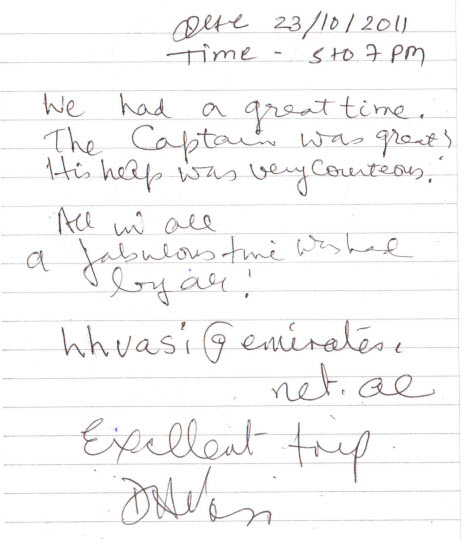 Date 23/10/2011
Time - 5 to 7 PM
We had a great time.
The Captain was great!
His help was very Courteous.
All in all
a fabulous time was had
by all!
hhvasi@emirates.
net.ae
Excellent trip